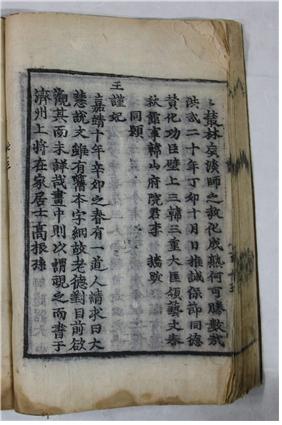 叢林宗淡師之敎化成熟何可勝數哉
洪武二十年丁卯十月日推誠保節同德
賛化功臣壁上三韓三重大匡領藝文春
秋館事韓山府院君李 穡跋
同願
王謹妃
嘉靖十年辛卯之春有一道人請求曰大
慧說文雖有舊本字細故老德對目前欲
觀其而未詳哉畫中則次謂覲之而書于
濟州上將在家居士高根孫